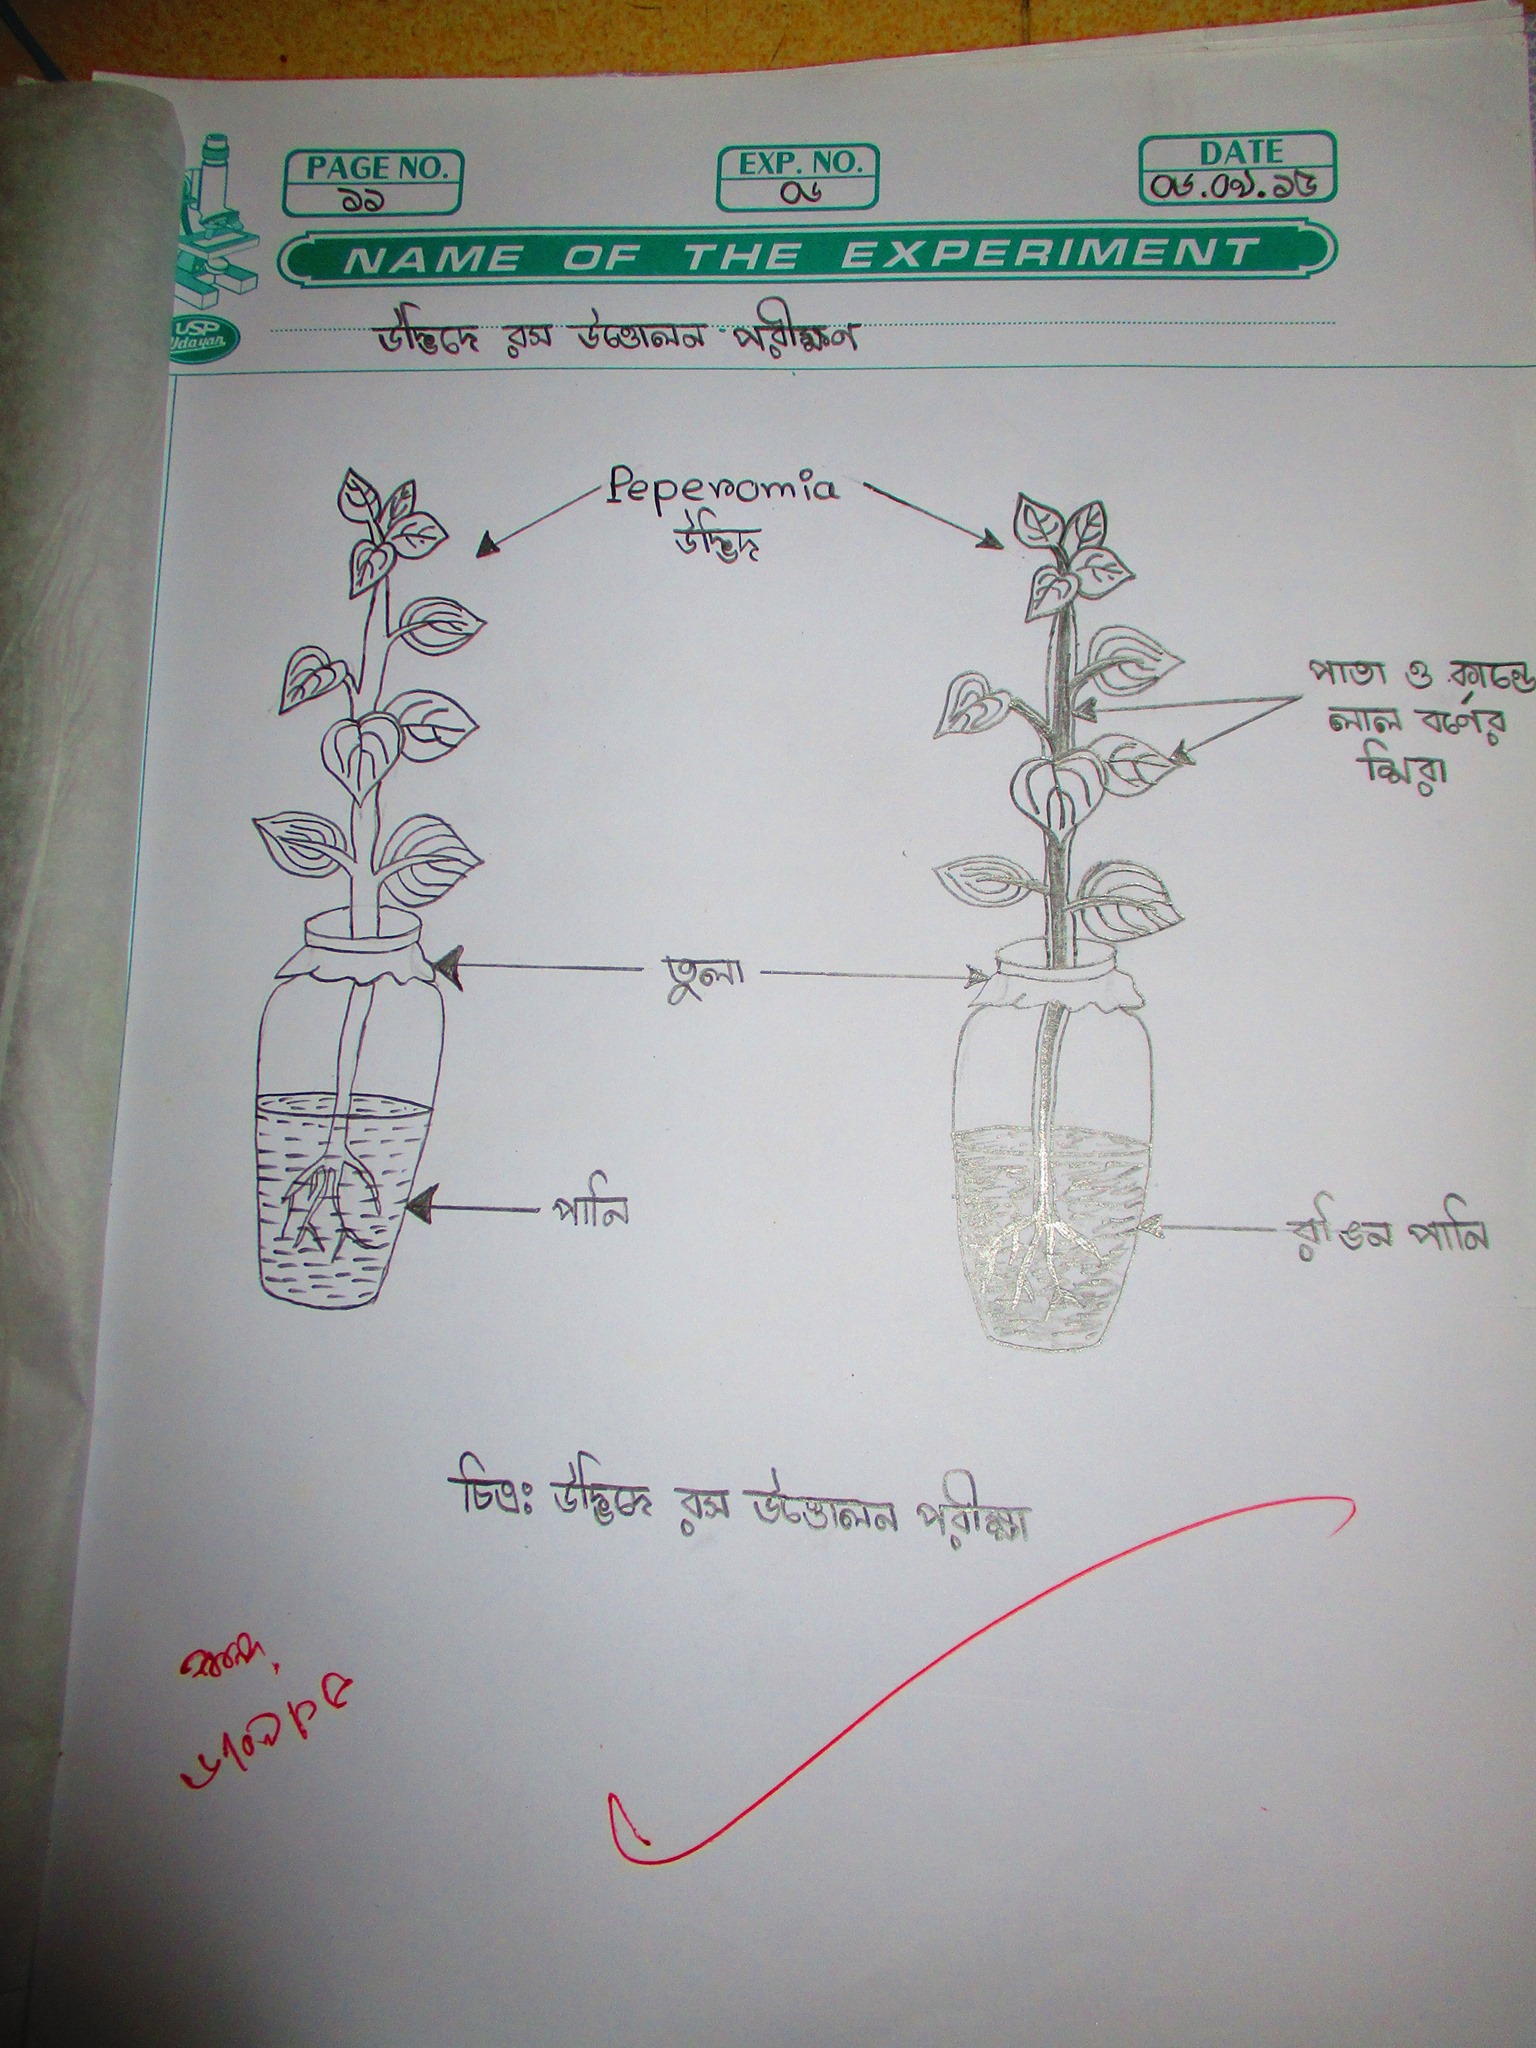 PAGE NO.
১১
EXP. NO.
০৬
DATE
০৬.০৯.১৫
NAME OF THE EXPERIMENT
USP
Udayan
উদ্ভিদে রস উত্তোলন পরীক্ষণ
Peperomia
উদ্ভিদ
পাতা ও কান্ডে
লাল বর্ণের
শিরা
তুলা
পানি
রঙিন পানি
চিত্রঃ উদ্ভিদে রস উত্তোলন পরীক্ষা